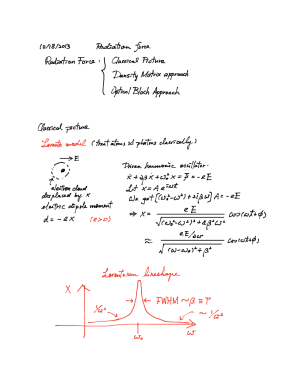 10/18/2013 Radiation force
Radiation Force: { Classical Picture
Density Matrix approach
Optical Bloch Approach
Classical picture
Lorentz model (treat atoms and photons classically)
→ E
electron cloud
displaced by x
electric dipole moment
d = -ex (e>0)
Driven harmonic oscillator.
ẍ + 2βẋ + ω₀²x = F = -eE
Let x = A e^{iωt}
We get [(ω₀²-ω²) + 2iβω] A = -eE
⇒ x = eE / √((ω₀²-ω²)² + 4β²ω²) cos(ωt+φ)
≈ eE/2ω / √((ω-ω₀)² + β²) cos(ωt+φ)
Lorentzian lineshape
X
FWHM ~ β = Γ
~ 1/ω²
ω₀
ω